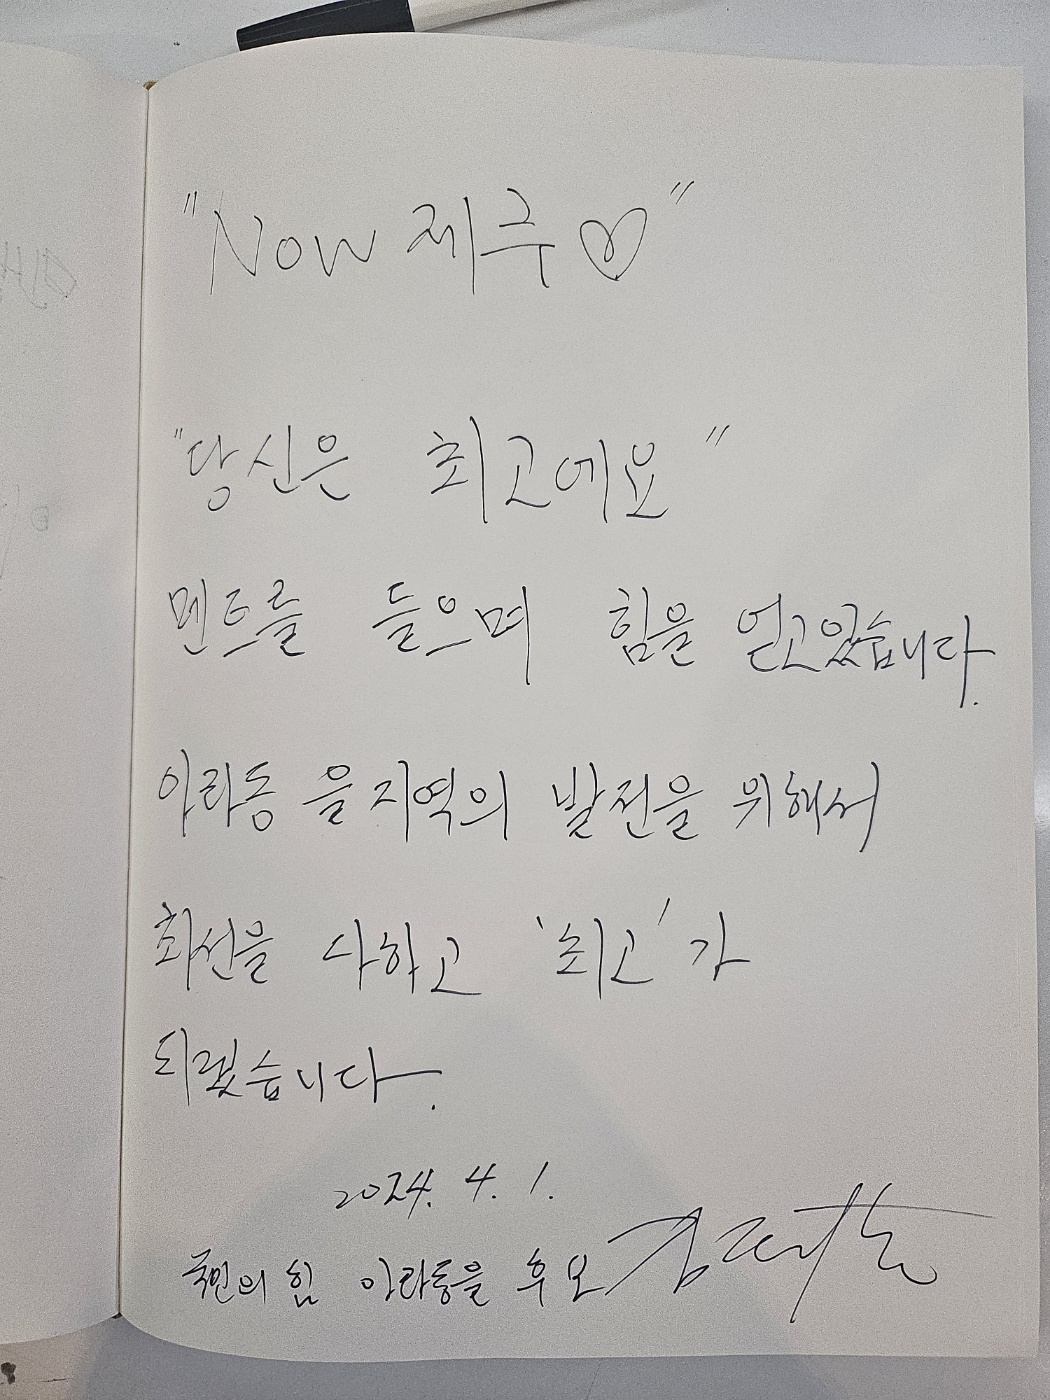 "Now 제주♡"
"당신은 최고에요"
멘트를 들으며 힘을 얻고있습니다.
아라동 을지역의 발전을 위해서
최선을 다하고 '최고'가
되겠습니다.
2024. 4. 1.
국민의힘 아라동을 후보